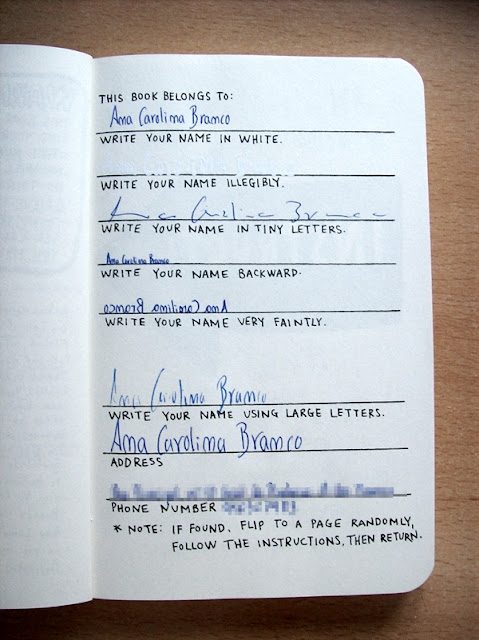 THIS BOOK BELONGS TO:
Ana Carolina Branco
WRITE YOUR NAME IN WHITE.
WRITE YOUR NAME ILLEGIBLY.
Ana Carolina Branco
WRITE YOUR NAME IN TINY LETTERS.
Ana Carolina Branco
WRITE YOUR NAME BACKWARD.
Ana Carolina Branco
WRITE YOUR NAME VERY FAINTLY.
Ana Carolina Branco
WRITE YOUR NAME USING LARGE LETTERS.
Ana Carolina Branco
ADDRESS
PHONE NUMBER
* NOTE: IF FOUND, FLIP TO A PAGE RANDOMLY,
FOLLOW THE INSTRUCTIONS, THEN RETURN.